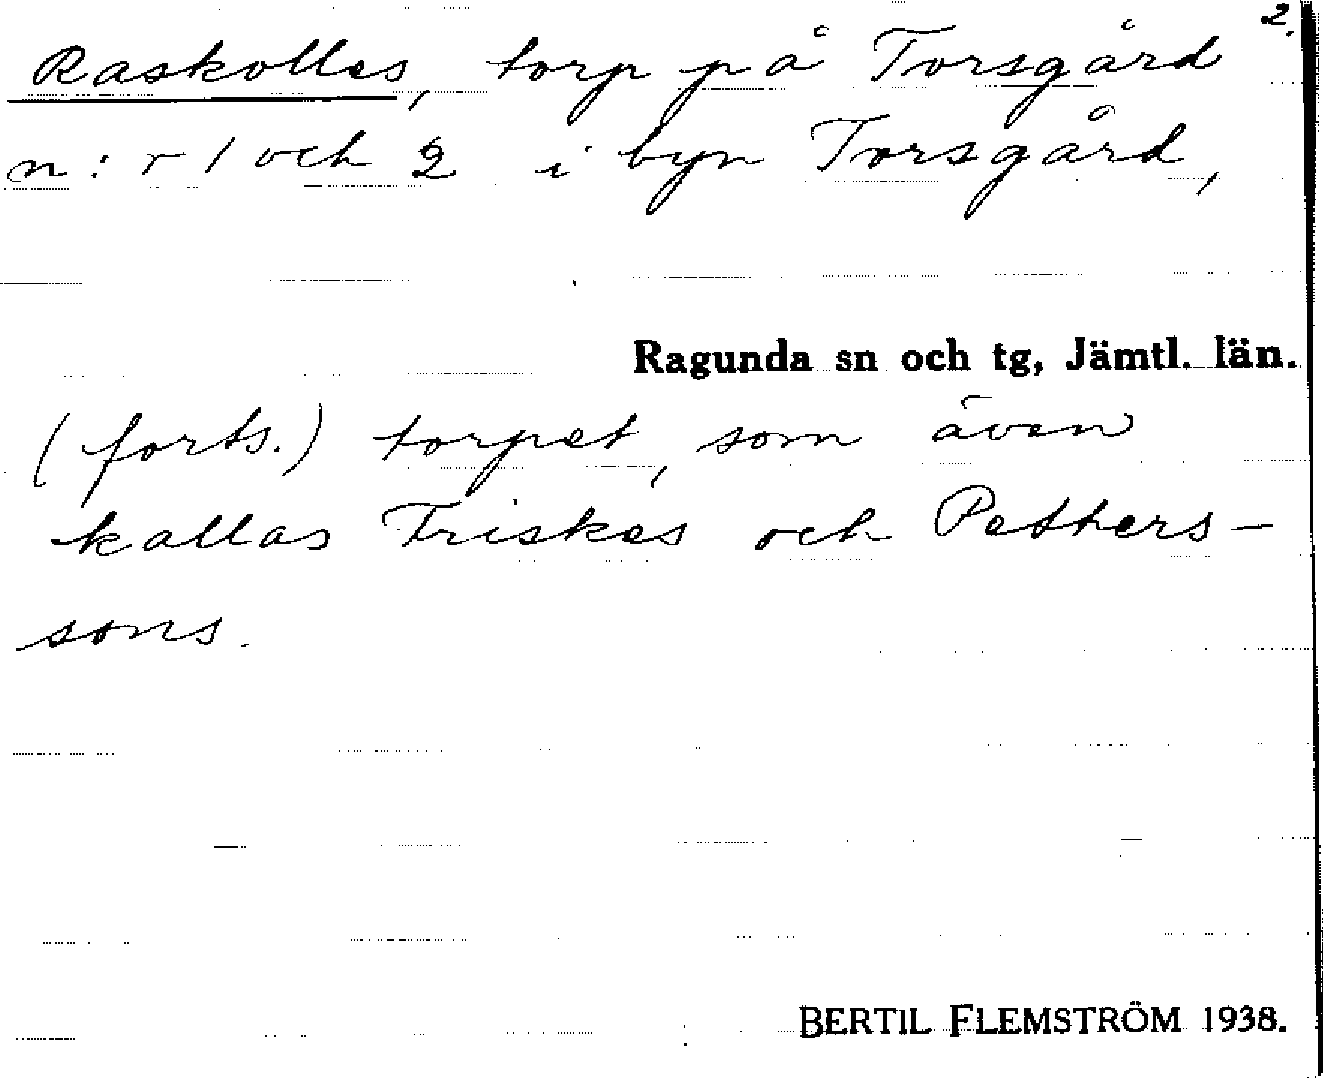 2.
Raskolles, torp på Torsgård
n:r 1 och 2 i byn Torsgård,
Ragunda sn och tg, Jämtl. län.
(forts.) torpet, som även
kallas Friskes och Pethers-
sons.
BERTIL FLEMSTRÖM 1938.